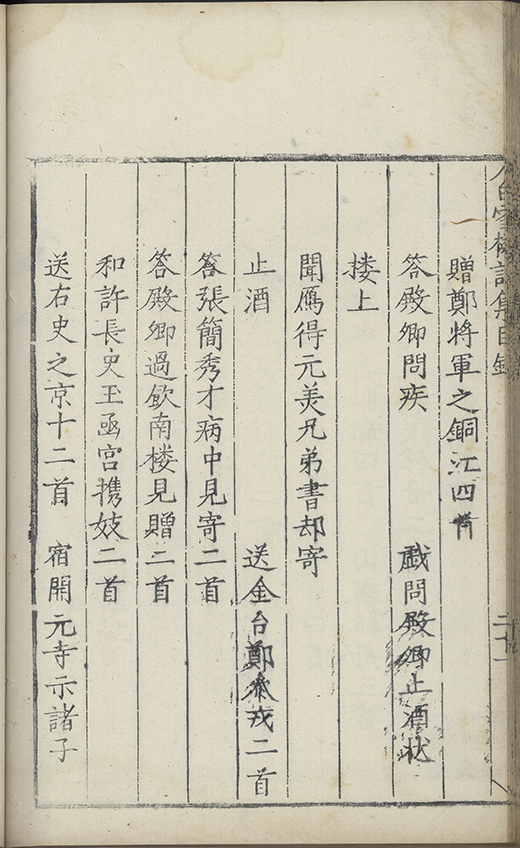 白雪樓詩集目錄
贈鄭將軍之銅江四首
答殿卿問疾　戲問殿卿止酒狀
楼上
聞鴈得元美兄弟書却寄
止酒　送金台鄭叅戎二首
答張簡秀才病中見寄二首
答殿卿過飲南楼見贈二首
和許長史王函宫携妓二首
送右史之京十二首　宿開元寺示諸子